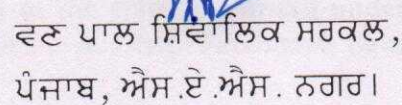 ਵਣ ਪਾਲ ਸ਼ਿਵਾਲਿਕ ਸਰਕਲ,
ਪੰਜਾਬ, ਐਸ.ਏ.ਐਸ. ਨਗਰ।